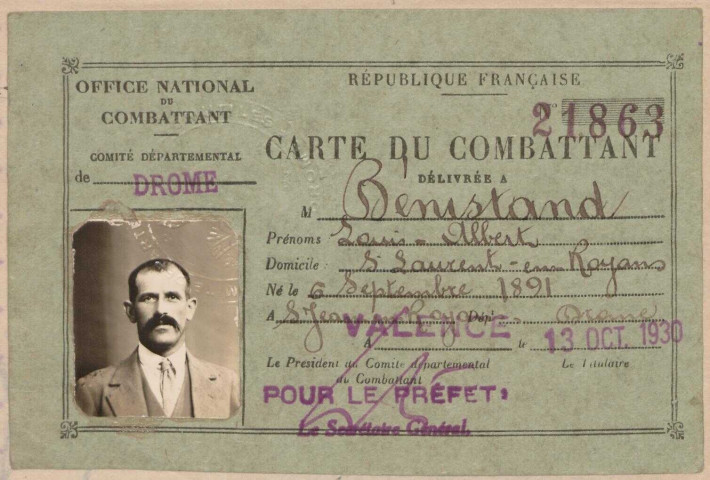 OFFICE NATIONAL
DU
COMBATTANT
COMITÉ DÉPARTEMENTAL
de DROME
RÉPUBLIQUE FRANÇAISE
N° 21863
CARTE DU COMBATTANT
DÉLIVRÉE A
M Bénistand
Prénoms Louis - Albert
Domicile : St Laurent - en Royans
Né le 6 Septembre 1891
A St Jean en Royans Dépt Drome
A VALENCE le 13 OCT. 1930
Le President du Comité départemental
du Combattant
Le Titulaire
POUR LE PRÉFET:
Le Secrétaire Général.